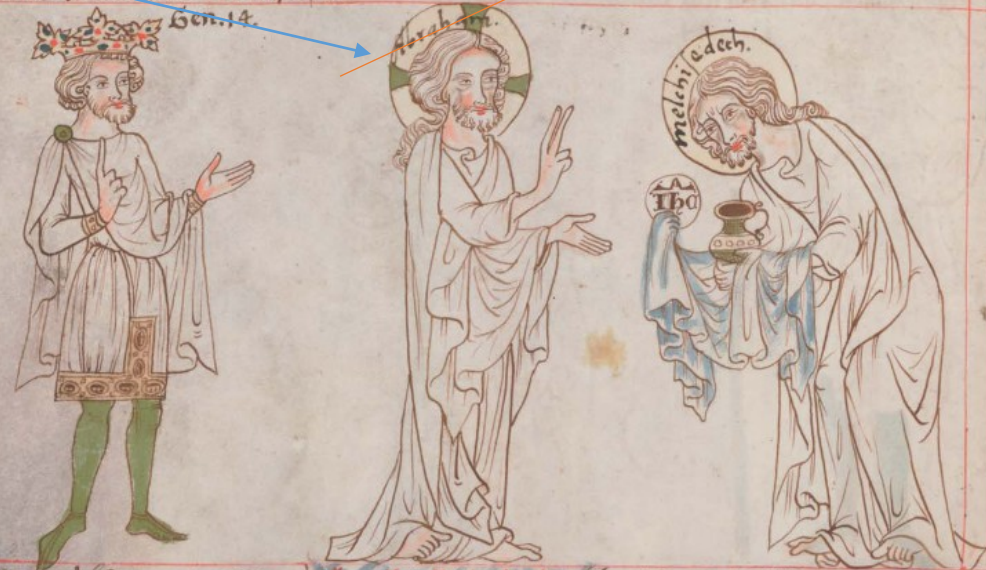 Gen. 14.
Abraham.
melchisedech.
Ihc